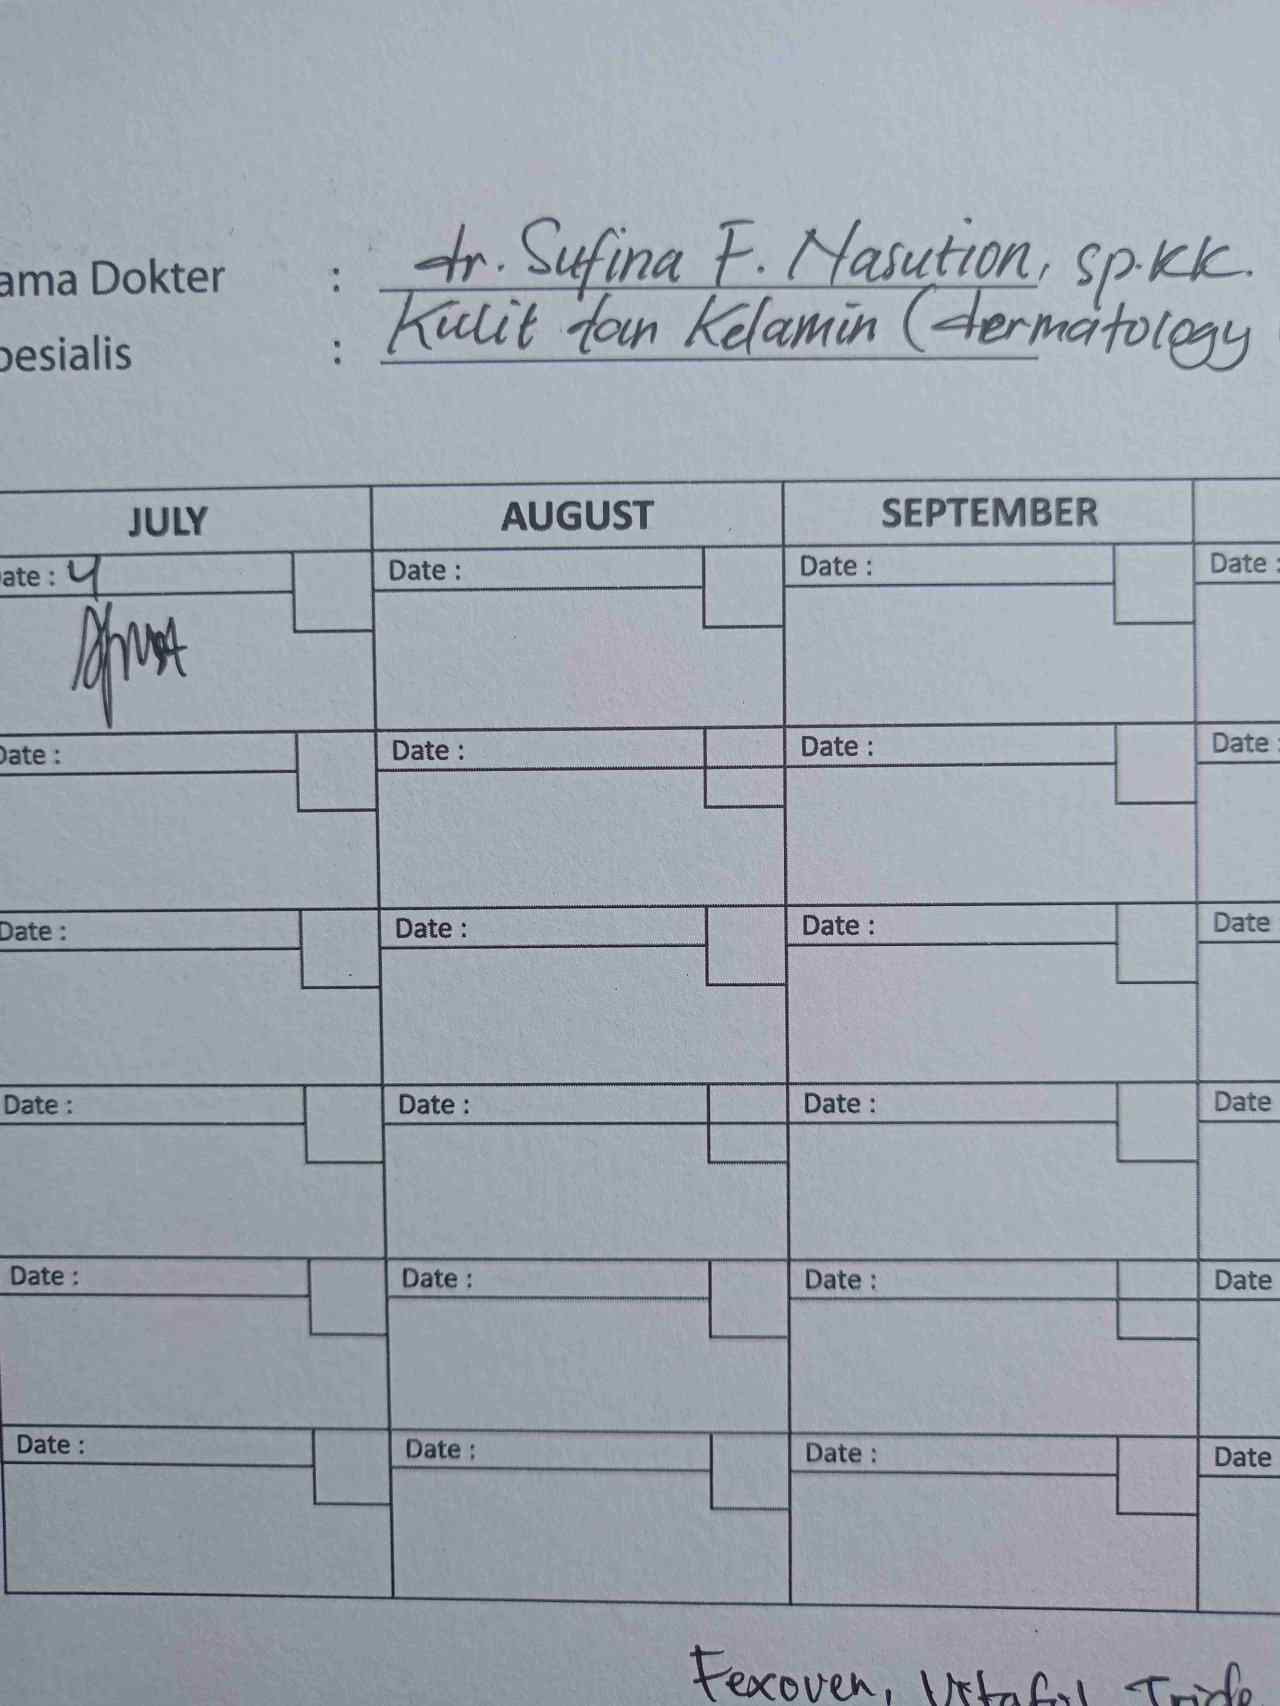 ama Dokter : dr. Sufina F. Nasution, sp.KK.
pesialis : Kulit dan Kelamin (dermatology
JULY AUGUST SEPTEMBER
ate : 4 Date : Date : Date :
Date : Date : Date : Date :
Date : Date : Date : Date
Date : Date : Date : Date
Date : Date : Date : Date
Date : Date : Date : Date
Fexoven,